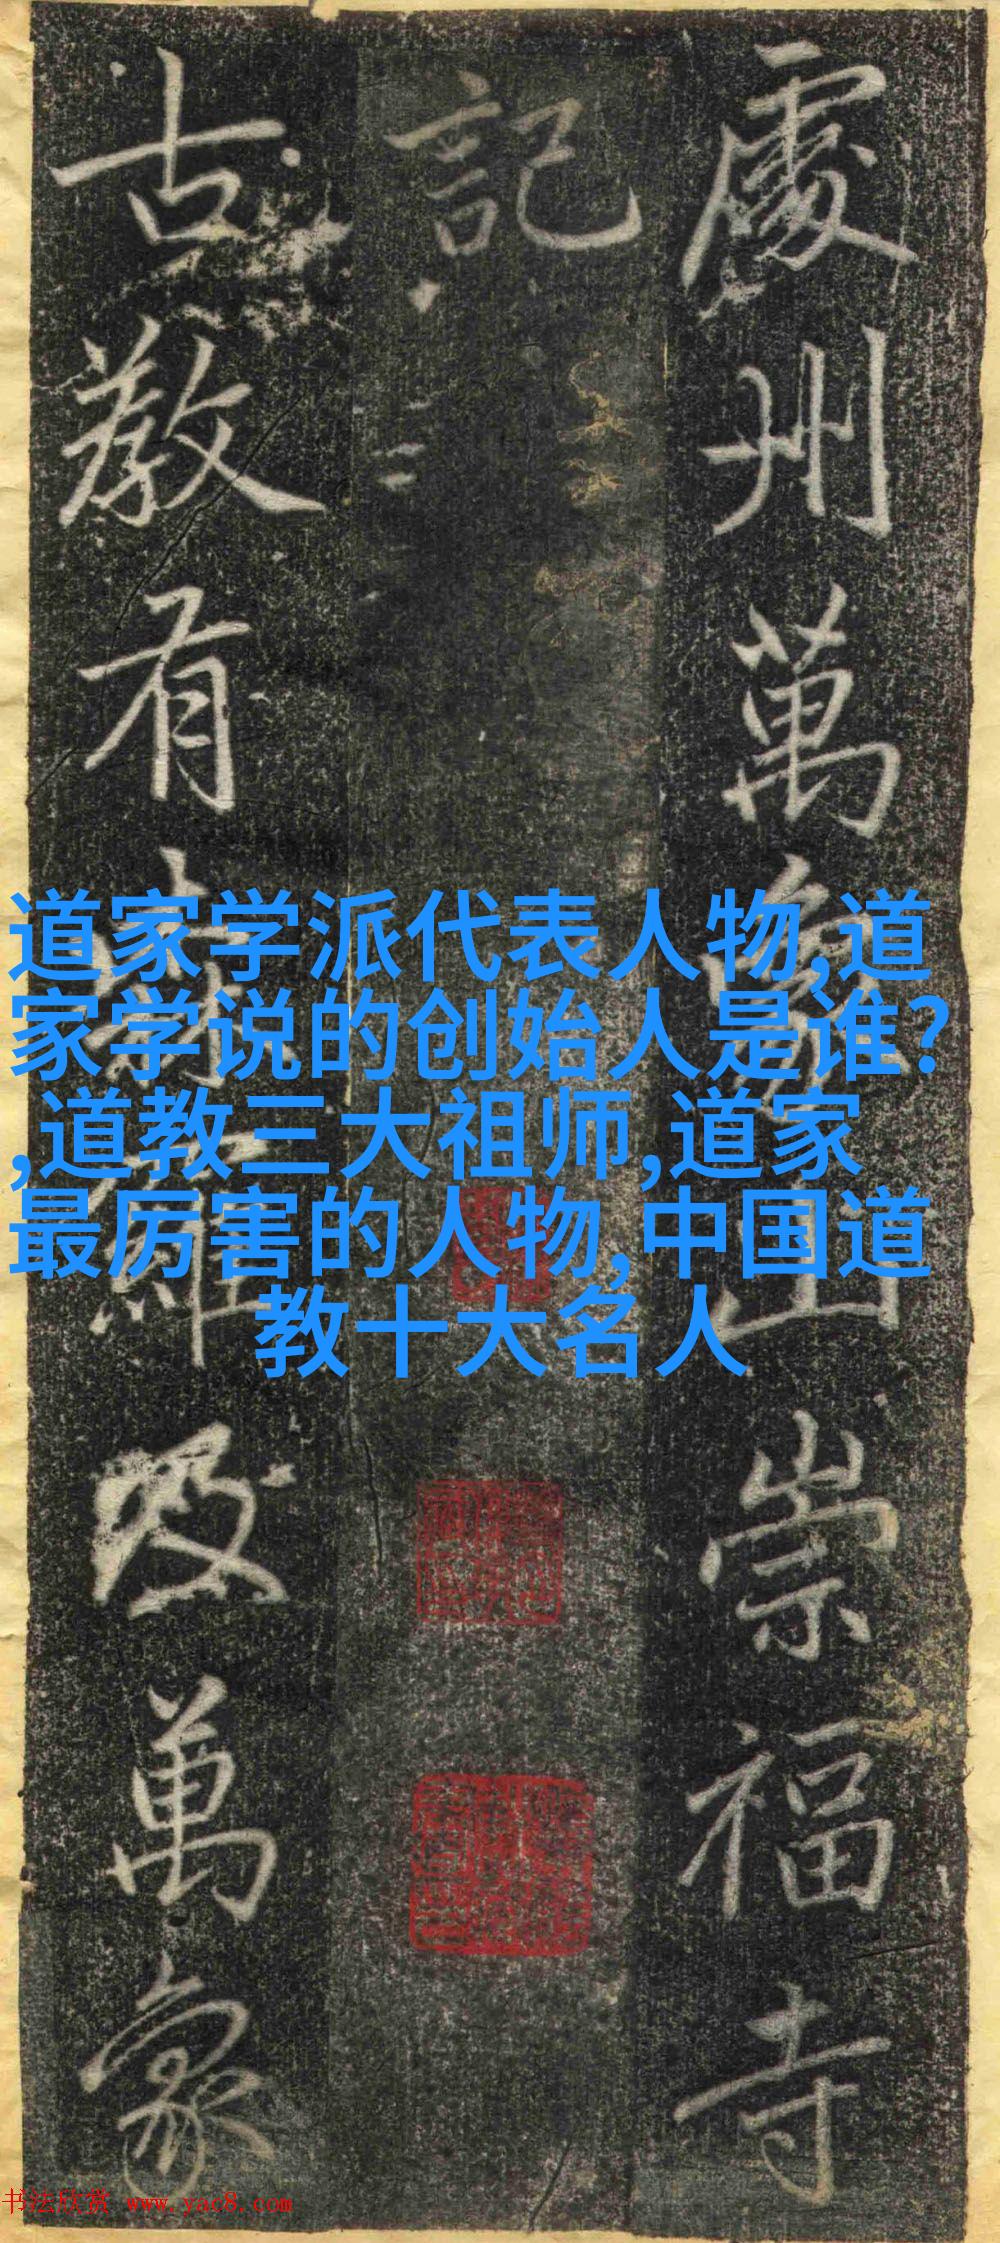 處州萬象山崇福寺
記
古教有
及萬象
道家学派代表人物,道
家学说的创始人是谁?
,道教三大祖师,道家
最厉害的人物,中国道
教十大名人
书法欣赏 www.yac8.com